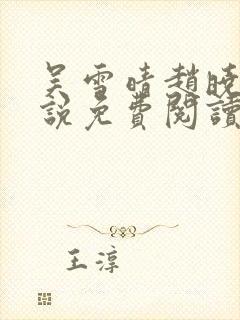 吴雪晴趙曉
說免費閱讀
王淳